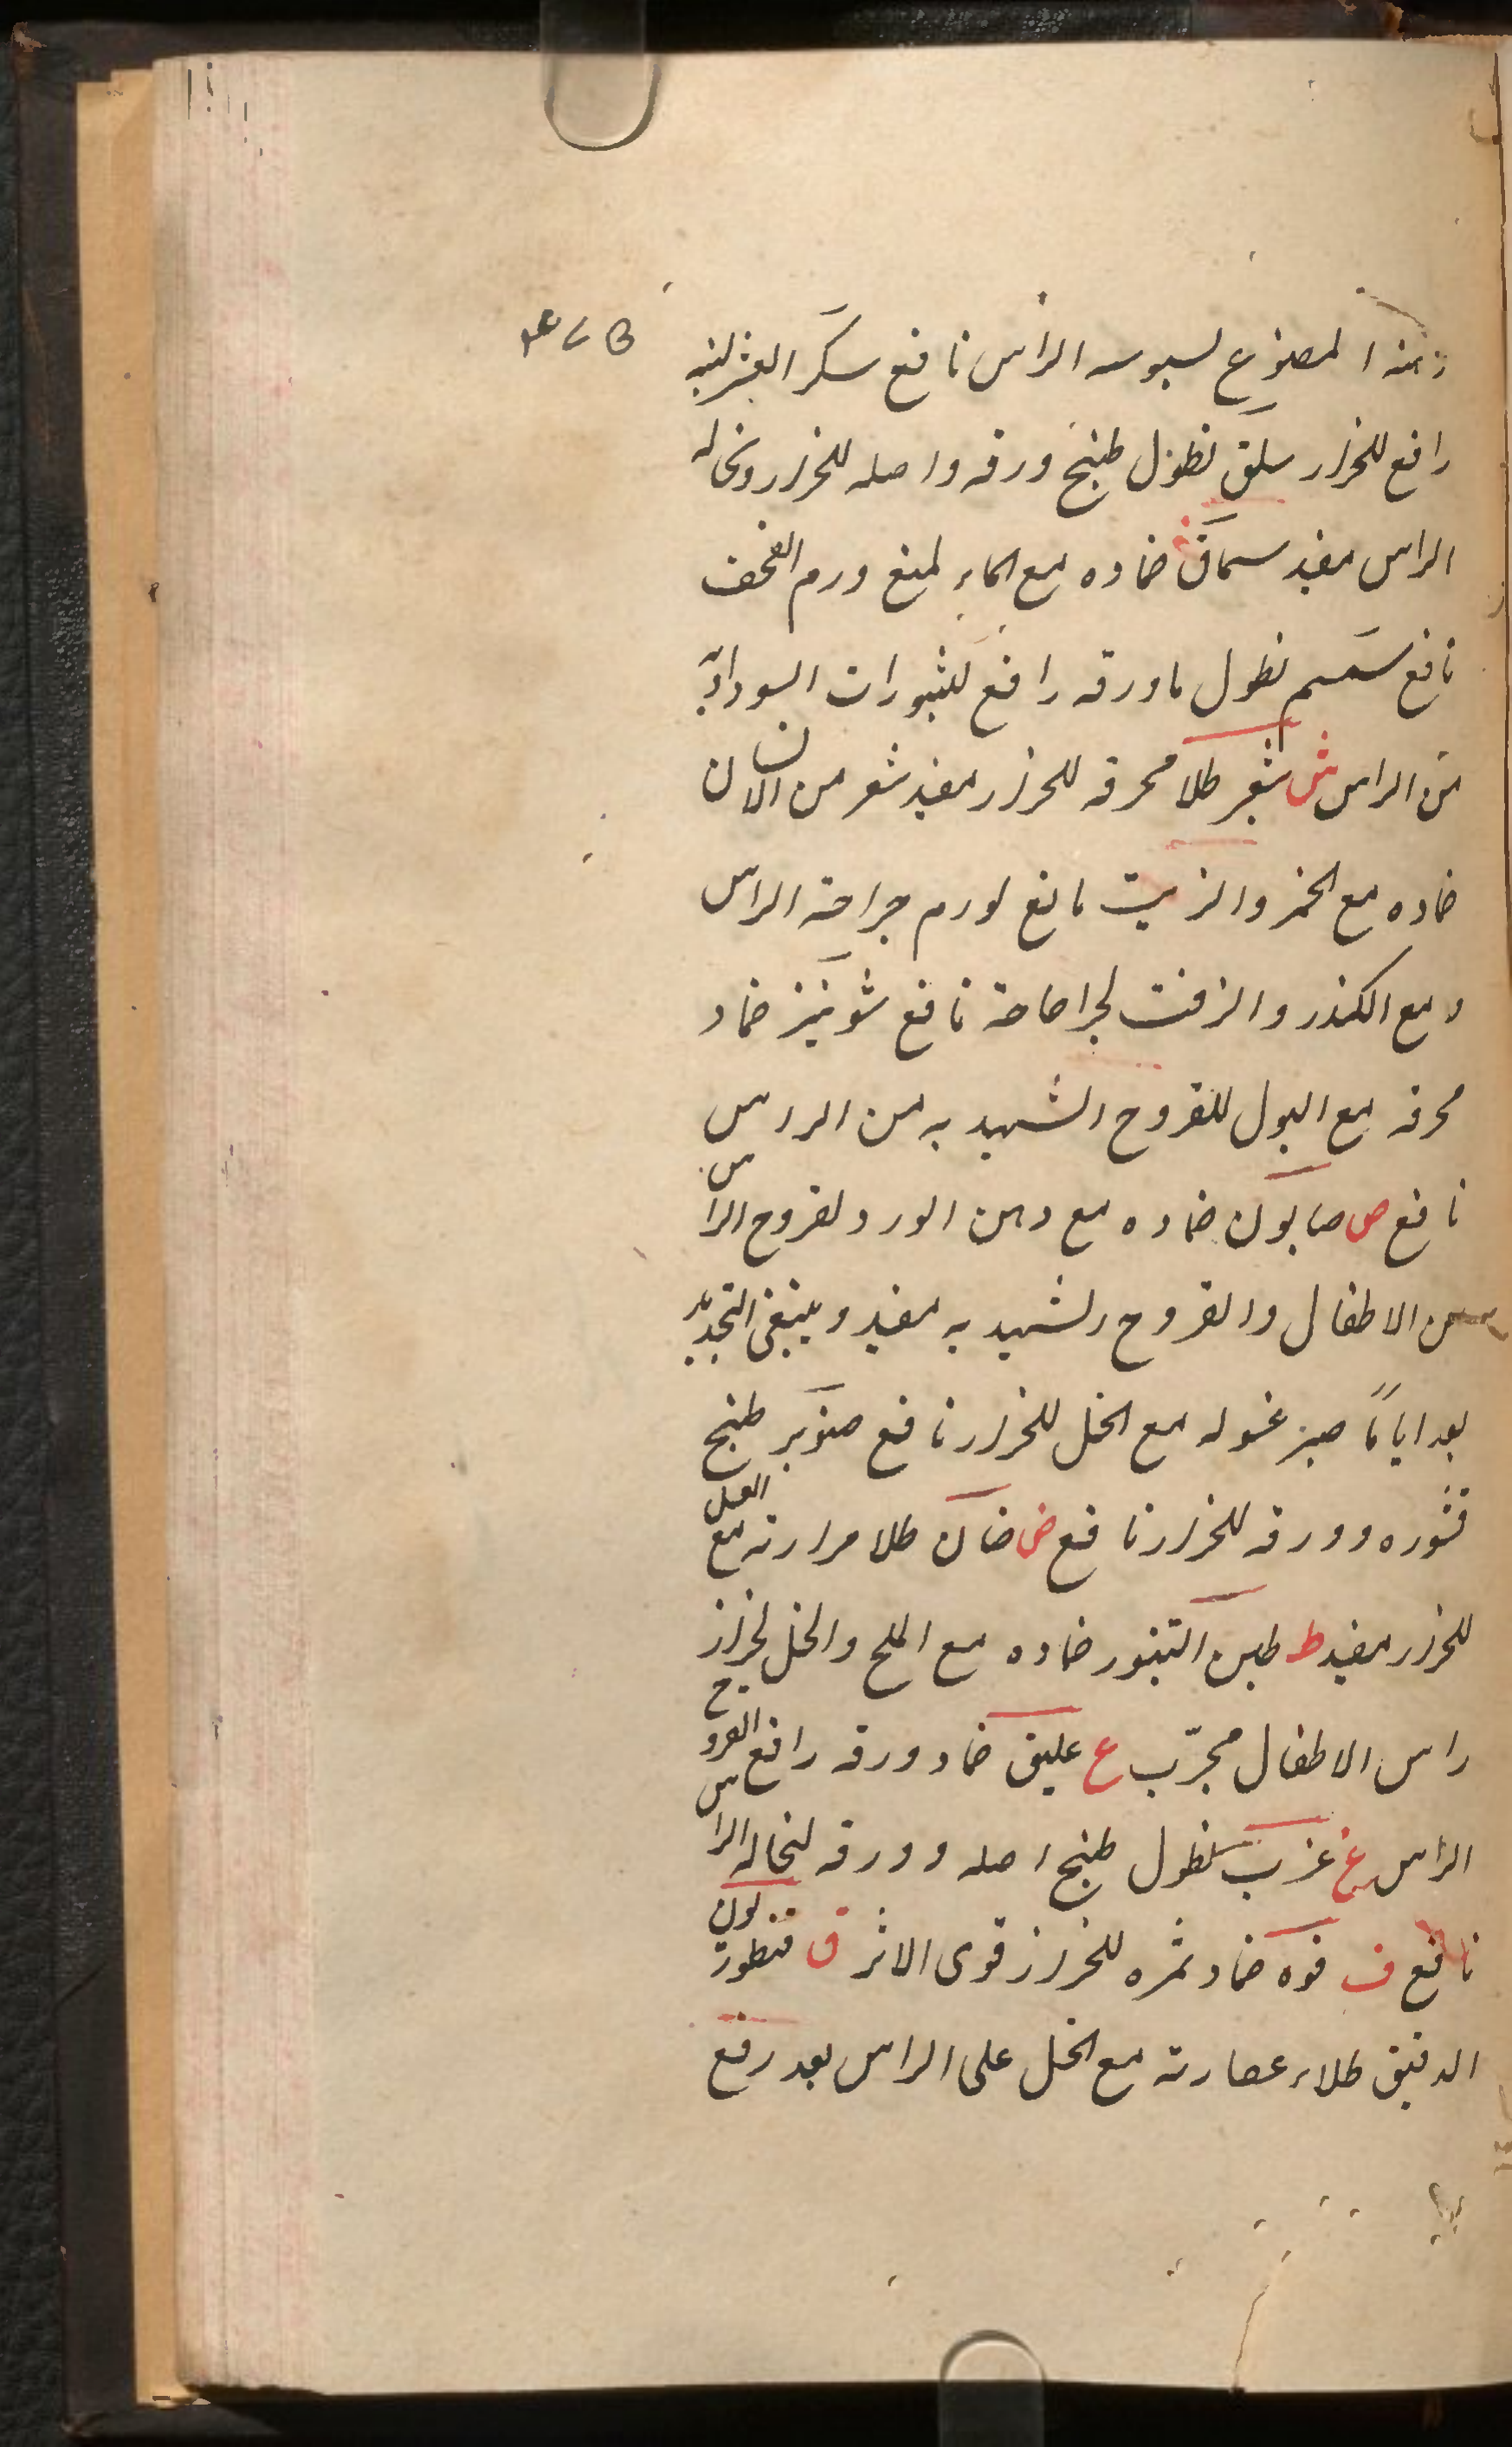 هذا المصنوع لسبوسه الراس نافع سكر العشر لبنه
رافع للحزاز سلق نطول طبيخ ورقه واصله للحزاز ونخاله
الراس مفيد سماق ضماده مع الماء لمنع ورم القحف
نافع سمسم نطول ما ورقه رافع للثبورات السوداویه
من الراس ش شعر طلا محرقه للحزاز مفيد شعر من الانسان
ضماده مع الخمر والزيت مانع لورم جراحة الراس
و مع الكندر والزفت لجراحاته نافع شونيز ضماد
محرقه مع البول للقروح الشهديه من الراس
نافع ص صابون ضماده مع دهن الورد لقروح الراس
من الاطفال والقروح الشهديه مفيد وينبغى التجديد
بعد اياماً صبر غسوله مع الخل للحزاز نافع صنوبر طبيخ
قشوره وورقه للحزاز نافع ض ضان طلا مرارته مع العسل
للحزاز مفيد ط طين التنور ضماده مع الملح والخل لحزاز
راس الاطفال مجرّب ع عليق ضماد ورقه رافع القروح
الراس غ غرب نطول طبيخ اصله وورقه لنخاله الراس
نافع ف فوه ضماد ثمره للحزاز قوى الاثر ق قنطوريون
الدقيق طلاء عصارته مع الخل على الراس بعد رفع